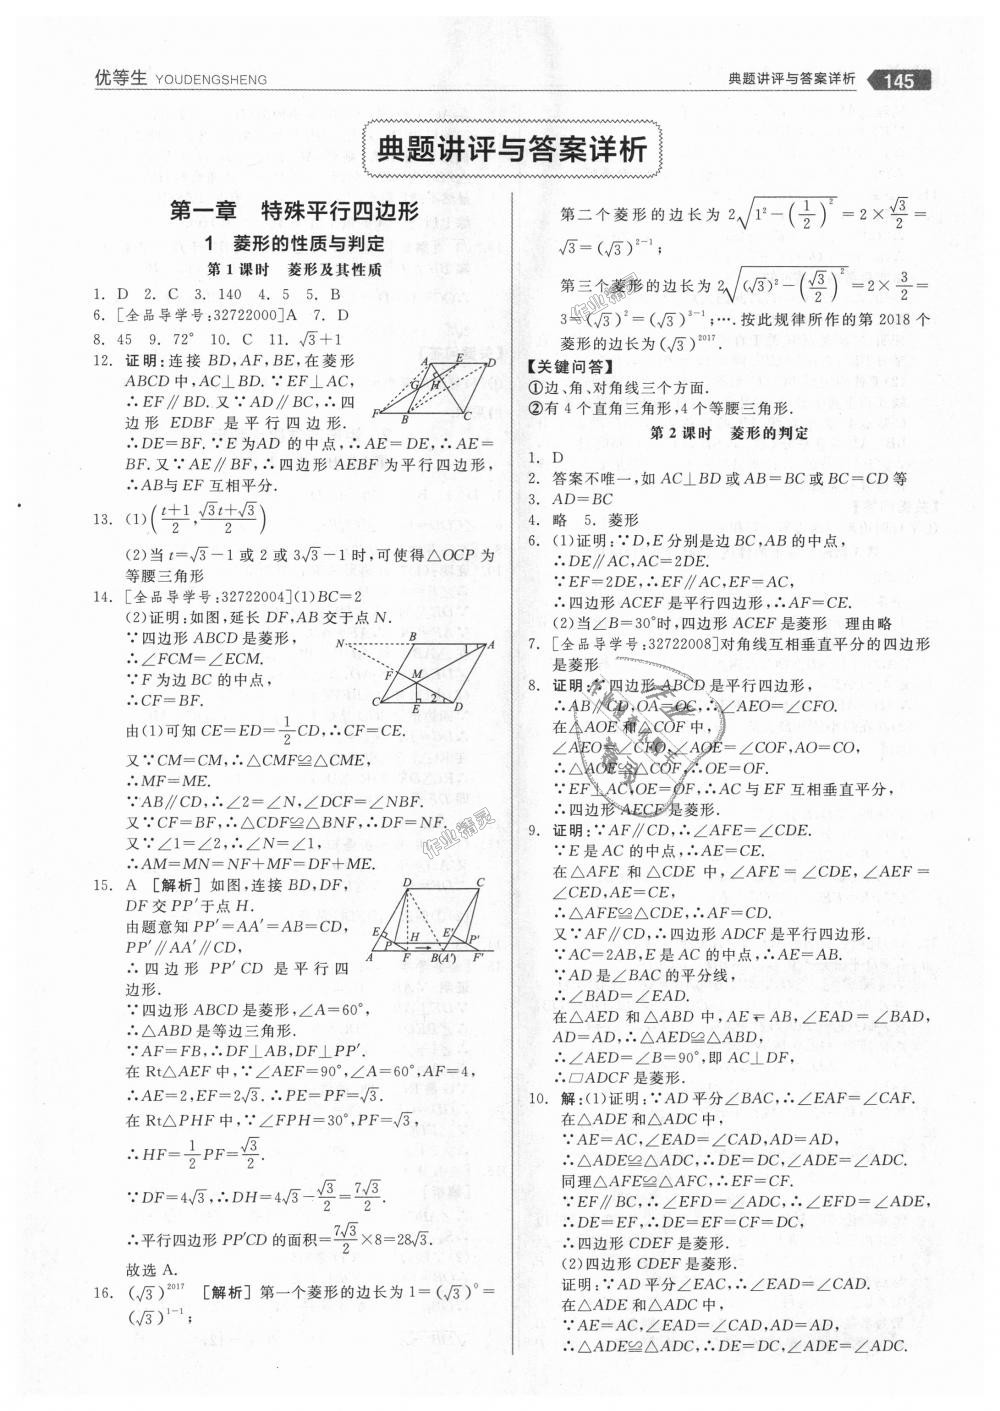 优等生 YOUDENGSHENG
典题讲评与答案详析 145
典题讲评与答案详析
第一章 特殊平行四边形
1 菱形的性质与判定
第1课时 菱形及其性质
1. D 2. C 3. 140 4. 5 5. B
6. [全品导学号:32722000]A 7. D
8. 45 9. 72° 10. C 11. √3+1
12. 证明:连接 BD,AF,BE,在菱形
ABCD 中,AC⊥BD.∵EF⊥AC,
∴EF∥BD.又∵AD∥BC,∴四
边形 EDBF 是平行四边形.
∴DE=BF.∵E为AD 的中点,∴AE=DE,∴AE=
BF.又∵AE∥BF,∴四边形 AEBF 为平行四边形,
∴AB与 EF 互相平分.
13. (1)((t+1)/2,(√3t+√3)/2)
(2)当 t=√3-1 或 2 或 3√3-1 时,可使得△OCP 为
等腰三角形
14. [全品导学号:32722004](1)BC=2
(2)证明:如图,延长 DF,AB 交于点 N.
∵四边形 ABCD 是菱形,
∴∠FCM=∠ECM.
∵F 为边 BC 的中点,
∴CF=BF.
由(1)可知 CE=ED=1/2CD,∴CF=CE.
又∵CM=CM,∴△CMF≌△CME,
∴MF=ME.
∵AB∥CD,∴∠2=∠N,∠DCF=∠NBF.
又∵CF=BF,∴△CDF≌△BNF,∴DF=NF.
又∵∠1=∠2,∴∠N=∠1,
∴AM=MN=NF+MF=DF+ME.
15. A [解析] 如图,连接 BD,DF,
DF 交 PP′于点 H.
由题意知 PP′=AA′=AB=CD,
PP′∥AA′∥CD,
∴四边形 PP′CD 是平行四
边形.
∵四边形 ABCD 是菱形,∠A=60°,
∴△ABD 是等边三角形.
∵AF=FB,∴DF⊥AB,DF⊥PP′.
在 Rt△AEF 中,∵∠AEF=90°,∠A=60°,AF=4,
∴AE=2,EF=2√3.∴PE=PF=√3.
在 Rt△PHF 中,∵∠FPH=30°,PF=√3,
∴HF=1/2PF=√3/2.
∵DF=4√3,∴DH=4√3-√3/2=7√3/2.
∴平行四边形 PP′CD 的面积=7√3/2×8=28√3.
故选 A.
16. (√3)²⁰¹⁷ [解析] 第一个菱形的边长为 1=(√3)⁰=
(√3)¹⁻¹;
第二个菱形的边长为 2√(1²-(1/2)²)=2×√3/2=
√3=(√3)²⁻¹;
第三个菱形的边长为 2√((√3)²-(√3/2)²)=2×3/2=
3=(√3)²=(√3)³⁻¹;….按此规律所作的第 2018 个
菱形的边长为(√3)²⁰¹⁷.
【关键问答】
①边、角、对角线三个方面.
②有 4 个直角三角形,4 个等腰三角形.
第2课时 菱形的判定
1. D
2. 答案不唯一,如 AC⊥BD 或 AB=BC 或 BC=CD 等
3. AD=BC
4. 略 5. 菱形
6. (1)证明:∵D,E 分别是边 BC,AB 的中点,
∴DE∥AC,AC=2DE.
∵EF=2DE,∴EF∥AC,EF=AC,
∴四边形 ACEF 是平行四边形,∴AF=CE.
(2)当∠B=30°时,四边形 ACEF 是菱形 理由略
7. [全品导学号:32722008]对角线互相垂直平分的四边形
是菱形
8. 证明:∵四边形 ABCD 是平行四边形,
∴AB∥CD,OA=OC,∴∠AEO=∠CFO.
在△AOE 和△COF 中,
∠AEO=∠CFO,∠AOE=∠COF,AO=CO,
∴△AOE≌△COF,∴OE=OF.
∵EF⊥AC,OE=OF,∴AC 与 EF 互相垂直平分,
∴四边形 AECF 是菱形.
9. 证明:∵AF∥CD,∴∠AFE=∠CDE.
∵E 是 AC 的中点,∴AE=CE.
在△AFE 和△CDE 中,∠AFE=∠CDE,∠AEF=
∠CED,AE=CE,
∴△AFE≌△CDE,∴AF=CD.
又∵AF∥CD,∴四边形 ADCF 是平行四边形.
∵AC=2AB,E 是 AC 的中点,∴AE=AB.
∵AD 是∠BAC 的平分线,
∴∠BAD=∠EAD.
在△AED 和△ABD 中,AE=AB,∠EAD=∠BAD,
AD=AD,∴△AED≌△ABD,
∴∠AED=∠B=90°,即 AC⊥DF,
∴□ADCF 是菱形.
10. 解:(1)证明:∵AD 平分∠BAC,∴∠EAF=∠CAF.
在△ADE 和△ADC 中,
∵AE=AC,∠EAD=∠CAD,AD=AD,
∴△ADE≌△ADC,∴DE=DC,∠ADE=∠ADC.
同理△AFE≌△AFC,∴EF=CF.
∵EF∥BC,∴∠EFD=∠ADC,∴∠EFD=∠ADE,
∴DE=EF,∴DE=EF=CF=DC,
∴四边形 CDEF 是菱形.
(2)四边形 CDEF 是菱形.
证明:∵AD 平分∠EAC,∴∠EAD=∠CAD.
在△ADE 和△ADC 中,
∵AE=AC,∠EAD=∠CAD,AD=AD,
∴△ADE≌△ADC,∴DE=DC,∠ADE=∠ADC.